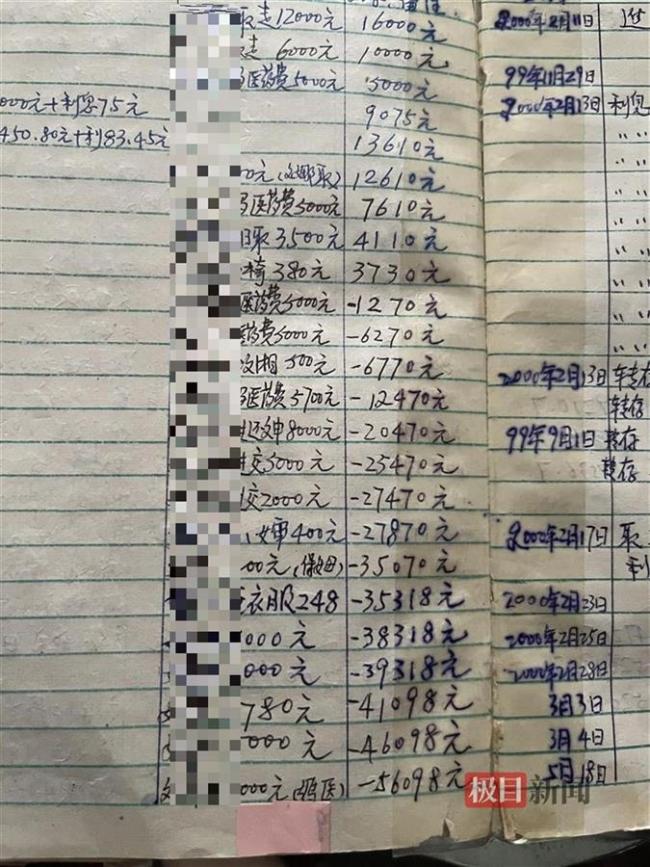 取走12000元 16000元 2000年2月11日
走 6000元 10000元
医药费5000元 5000元 99年11月29日
000元+利息75元 9075元 2000年2月13日 利息
450.80元+利83.45元 13610元 〃 〃
0元( 取) 12610元 〃 〃
医药费5000元 7610元 〃 〃
取3500元 4110元 〃 〃
椅380元 3730元 〃 〃
医药费5000元 -1270元 〃 〃
药费5000元 -6270元 〃 〃
500元 -6770元 2000年2月13日 转存
医药费5700元 -12470元 转存
还文中8000元 -20470元 99年9月1日 转存
交5000元 -25470元 转存
交2000元 -27470元
400元 -27870元 2000年2月17日 取
00元(保姆) -35070元 利
衣服248 -35318元 2000年2月23日
000元 -38318元 2000年2月25日
000元 -39318元 2000年2月28日
780元 -41098元 3月3日
000元 -46098元 3月4日
000元( 医) -56098元 5月18日
极目新闻